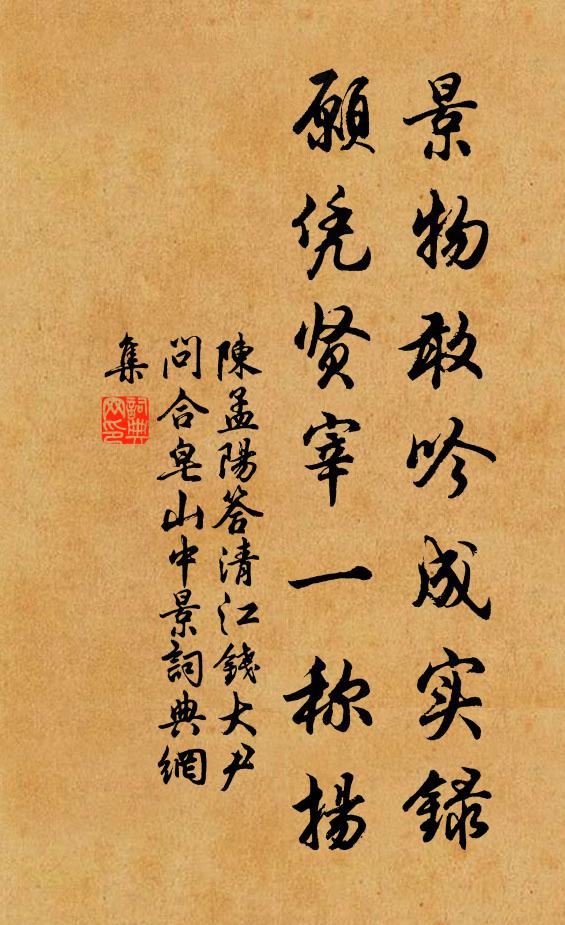 景物敢吟成实録
願凭贤宰一称揚
陳孟陽答清江錢大尹
問合皂山中景詞典網
集
詞典網印